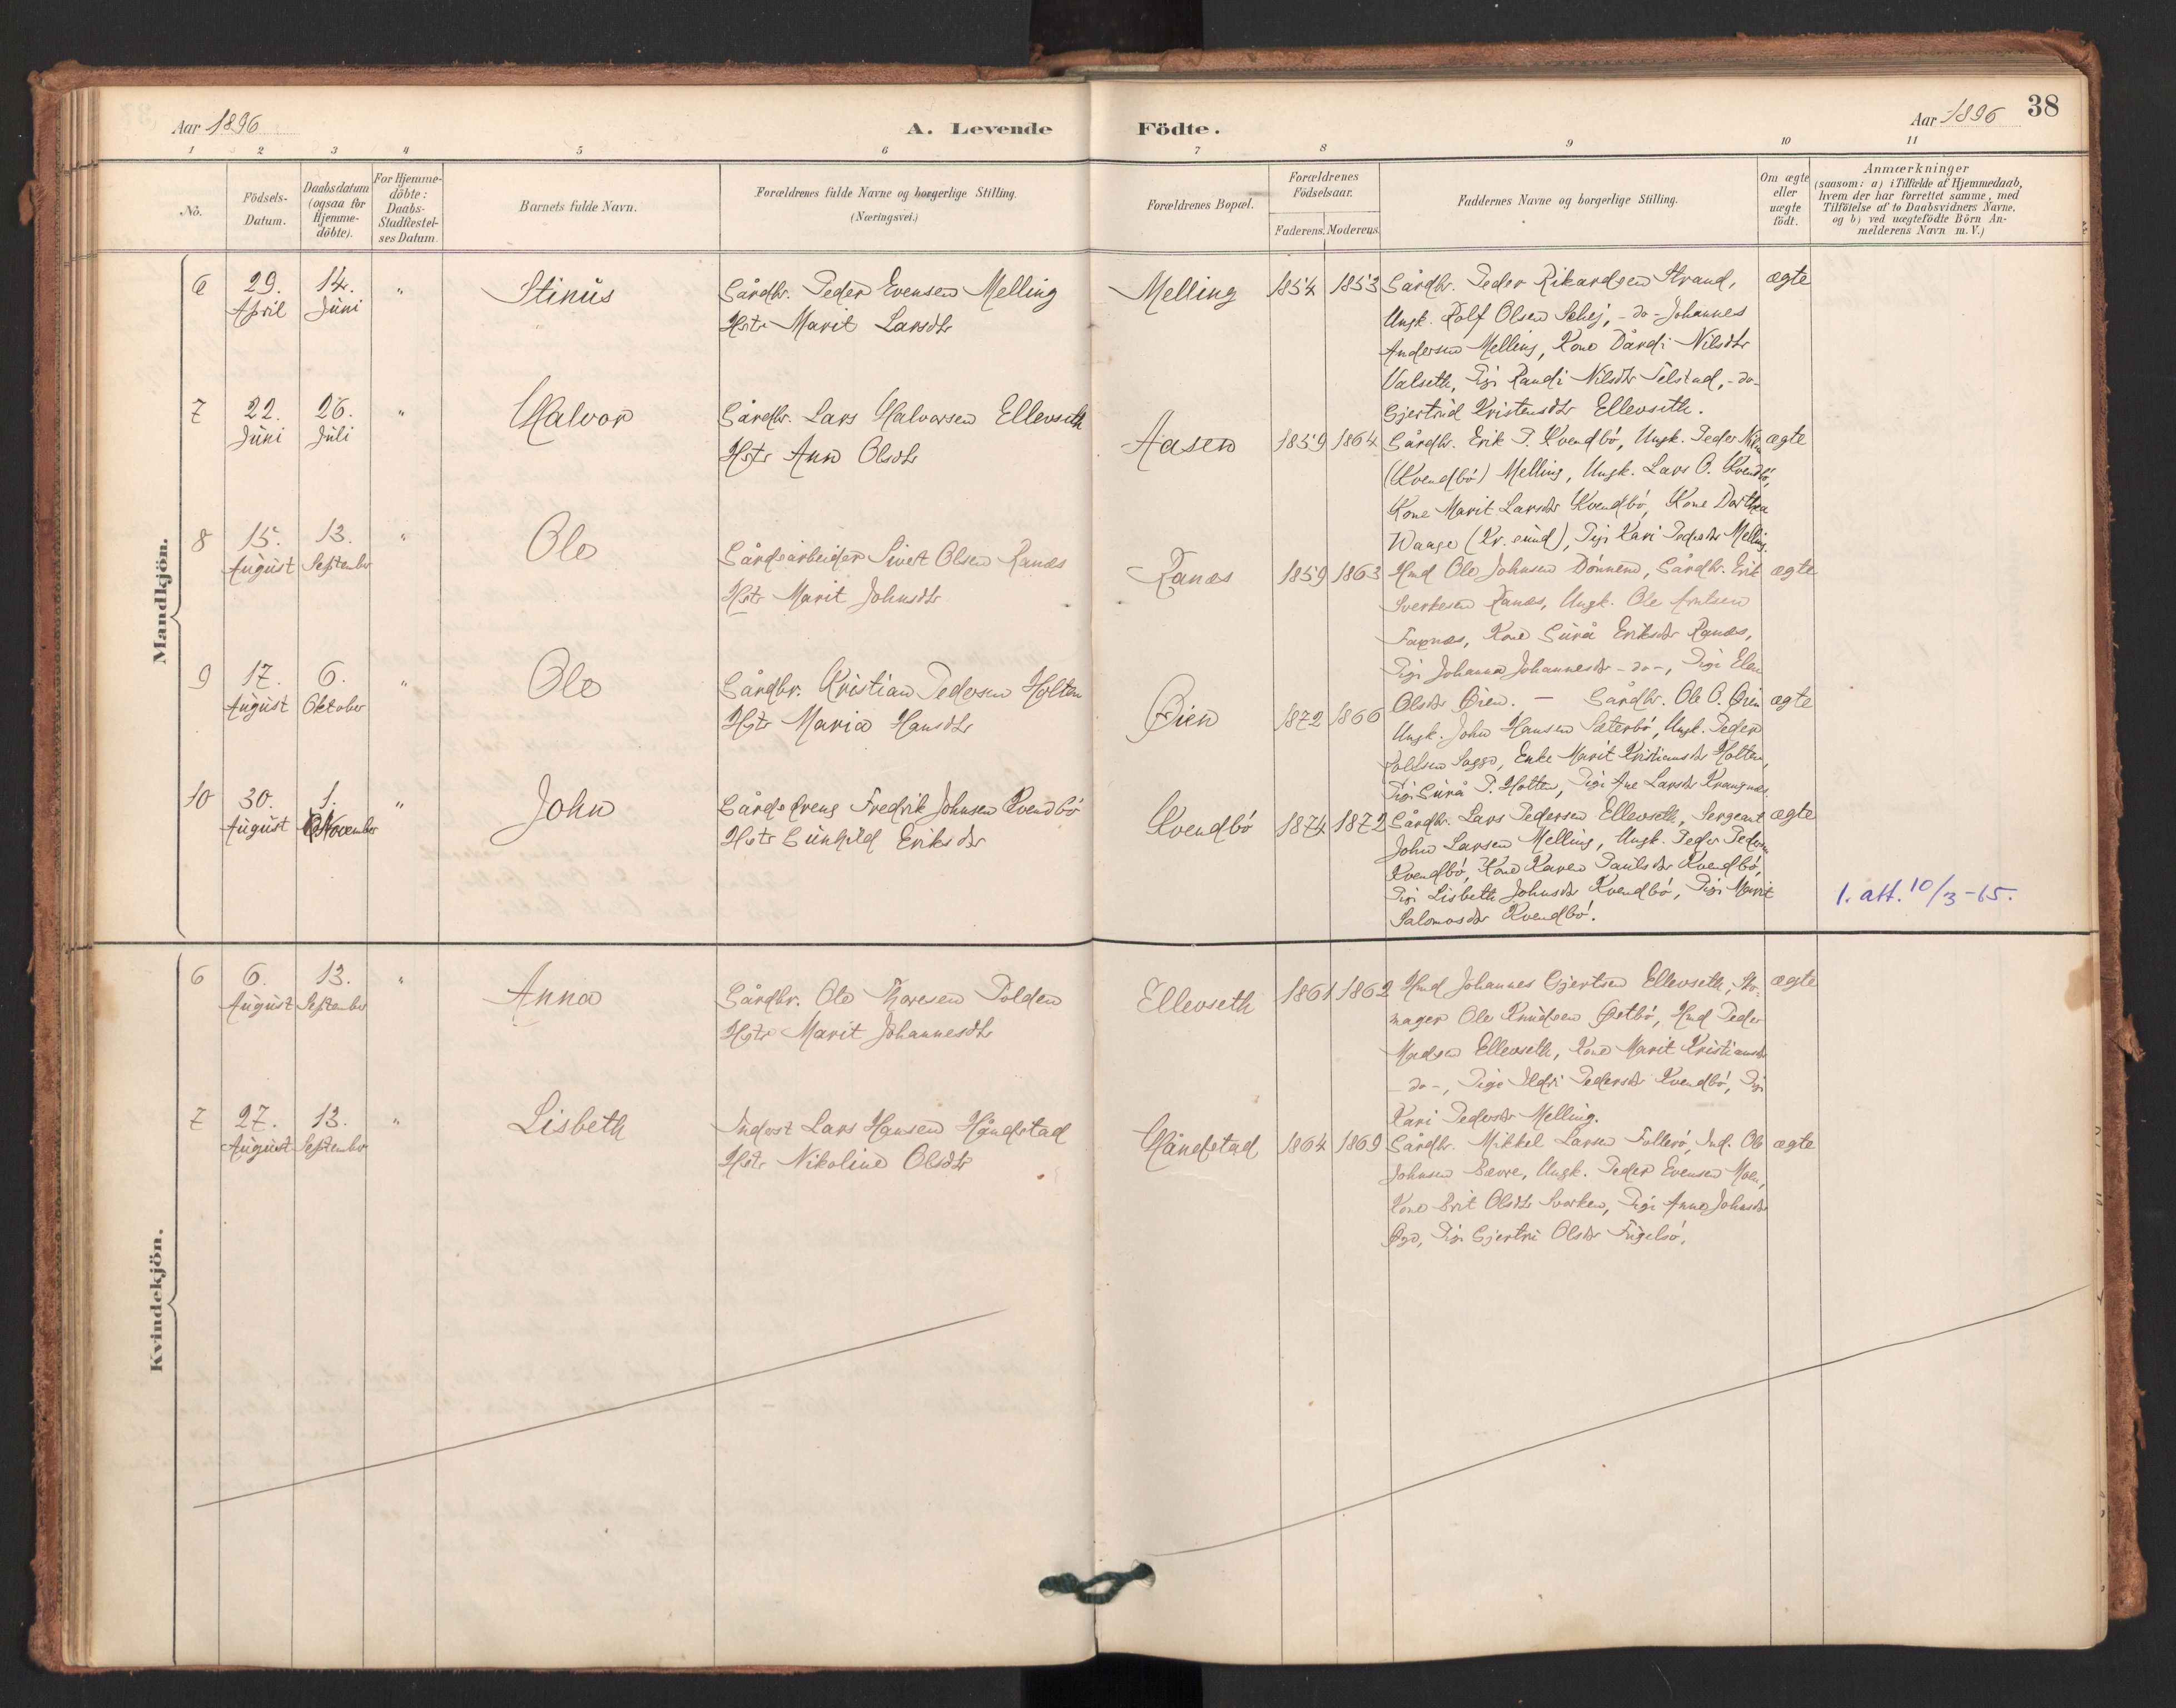 Aar 1896
A. Levende
Födte.
Aar 1896
38
1 2 3 4 5 6 7 8 9 10 11
No.
Födsels-
Datum.
Daabsdatum
(ogsaa for
Hjemme-
döbte).
For Hjemme-
döbte:
Daabs-
Stadfæstel-
ses Datum
Barnets fulde Navn.
Forældrenes fulde Navne og borgerlige Stilling.
(Næringsvei.)
Forældrenes Bopæl.
Forældrenes
Födselsaar.
Faderens. Moderens.
Faddernes Navne og borgerlige Stilling.
Om ægte
eller
uægte
födt.
Anmærkninger
(saasom: a) i Tilfælde af Hjemmedaab,
hvem der har forrettet samme, med
Tilföielse af to Daabsvidners Navne.
og b) ved uægtefödte Börn An-
melderens Navn m. V.)
Mandkjön.
6
29.
April
14.
Juni
"
Stinus
Gårdbr. Peder Evensen Melling
Hstr Marit Larsdtr
Melling
1854 1853
Gårdbr. Peder Rikardsen Strand,
Ungk. Rolf Olsen Schej, -do- Johannes
Andersen Melling, Kone Dårdi Nilsdtr
Valseth, Pigi Randi Nilsdtr Telstad, -do-
Gjertrud Kristensdtr Ellevseth.
ægte
7
22.
Juni
26.
Juli
"
Halvor
Gårdbr. Lars Halvorsen Ellevseth
Hstr Ann Olsdtr
Aasen
1859 1864
Gårdbr. Erik P. Kvendbö, Ungk. Peder Nils
(Kvendbö) Melling, Ungk. Lars O. Kvendbö,
Kone Marit Larsdtr Kvendbö, Kone Dorthea
Waage (Kr.sund), Pigi Kari Pedersdtr Melling.
ægte
8
15.
August
13.
September
"
Ole
Gårdsarbeider Sivert Olsen Ranæs
Hstr Marit Johnsdtr
Ranæs
1859 1863
Hmd Ole Johnsen Dönnem, Gårdbr. Erik
Sverkesen Ranæs, Ungk. Ole Arntsen
Faxnæs, Kone Gurå Eriksdtr Ranæs,
Pigi Johanna Johannesdtr -do-, Pigi Elen
Olsdtr Øien. —
ægte
9
17.
August
6.
Oktober
"
Ole
Gårdbr. Kristian Pedersen Holten
Hstr Maria Hansdtr
Øien
1872 1866
Gårdbr. Ole O. Øien
Ungk. John Hansen Sæterbö, Ungk. Peder
Rolfsen Sogge, Enke Marit Kristiansdtr Holten,
Pigi Gurå P. Holten, Pigi Ane Larsdtr Krangnæs.
ægte
10
30.
August
1.
November
"
John
Gårdsdreng Fredrik Johnsen Kvendbö
Hstr Gunhild Eriksdtr
Kvendbö
1874 1872
Gårdbr. Lars Pedersen Ellevseth, Sergeant
John Larsen Melling, Ungk. Peder Pedersen
Kvendbö, Kone Karen Paulsdtr Kvendbö,
Pigi Lisbeth Johnsdtr Kvendbö, Pigi Marit
Salomosdtr Kvendbö.
ægte
1. att. 10/3-65.
Kvindekjön.
6
6.
August
13.
September
"
Anna
Gårdbr. Ole Thoresen Polden
Hstr Marit Johannesdtr
Ellevseth
1861 1862
Hmd Johannes Gjertsen Ellevseth, Sko-
mager Ole Knudsen Østbö, Hmd Peder
Madsen Ellevseth, Kone Marit Kristiansdtr
-do-, Pige Ildri Pedersdtr Kvendbö, Pigi
Kari Pedersdtr Melling.
ægte
7
27.
August
13.
September
"
Lisbeth
Inderst Lars Hansen Håndstad
Hstr Nikoline Olsdtr
Håndstad
1864 1869
Gårdbr. Mikkel Larsen Fullerö, Ind. Ole
Johnsen Bævre, Ungk. Peder Evensen Moen,
Kone Brit Olsdtr Svorken, Pigi Anne Johnsdtr
Øye, Pigi Gjertru Olsdtr Fugelsö.
ægte